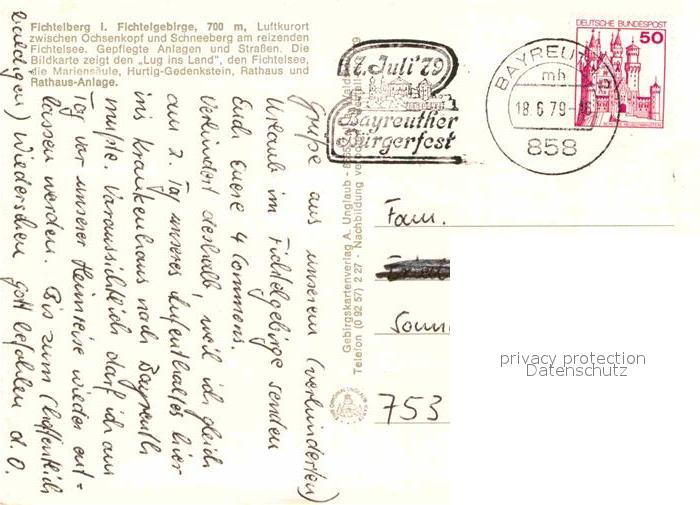 Fichtelberg i. Fichtelgebirge, 700 m, Luftkurort
zwischen Ochsenkopf und Schneeberg am reizenden
Fichtelsee. Gepflegte Anlagen und Straßen. Die
Bildkarte zeigt den „Lug ins Land", den Fichtelsee,
die Mariensäule, Hurtig-Gedenkstein, Rathaus und
Rathaus-Anlage.
7. Juli '79
Bayreuther
Bürgerfest
BAYREUTH
mh
18.6.79-16
858
DEUTSCHE BUNDESPOST
50
Grüße aus unserem (verhinderten)
Urlaub im Fichtelgebirge senden
Euch Euere 4 Commens.
Verhindert deshalb, weil ich gleich
am 2. Tag unseres Aufenthaltes hier
ins Krankenhaus nach Bayreuth
mußte. Voraussichtlich darf ich am
Tag vor unserer Heimreise wieder ent-
lassen werden. Bis zum (hoffentlich
baldigen) Wiedersehen Gott befohlen d. O.
Gebirgskartenverlag A. Unglaub
Telefon (0 92 57) 2 27 - Nachbildung
Fam.
Sonn
753
privacy protection
Datenschutz